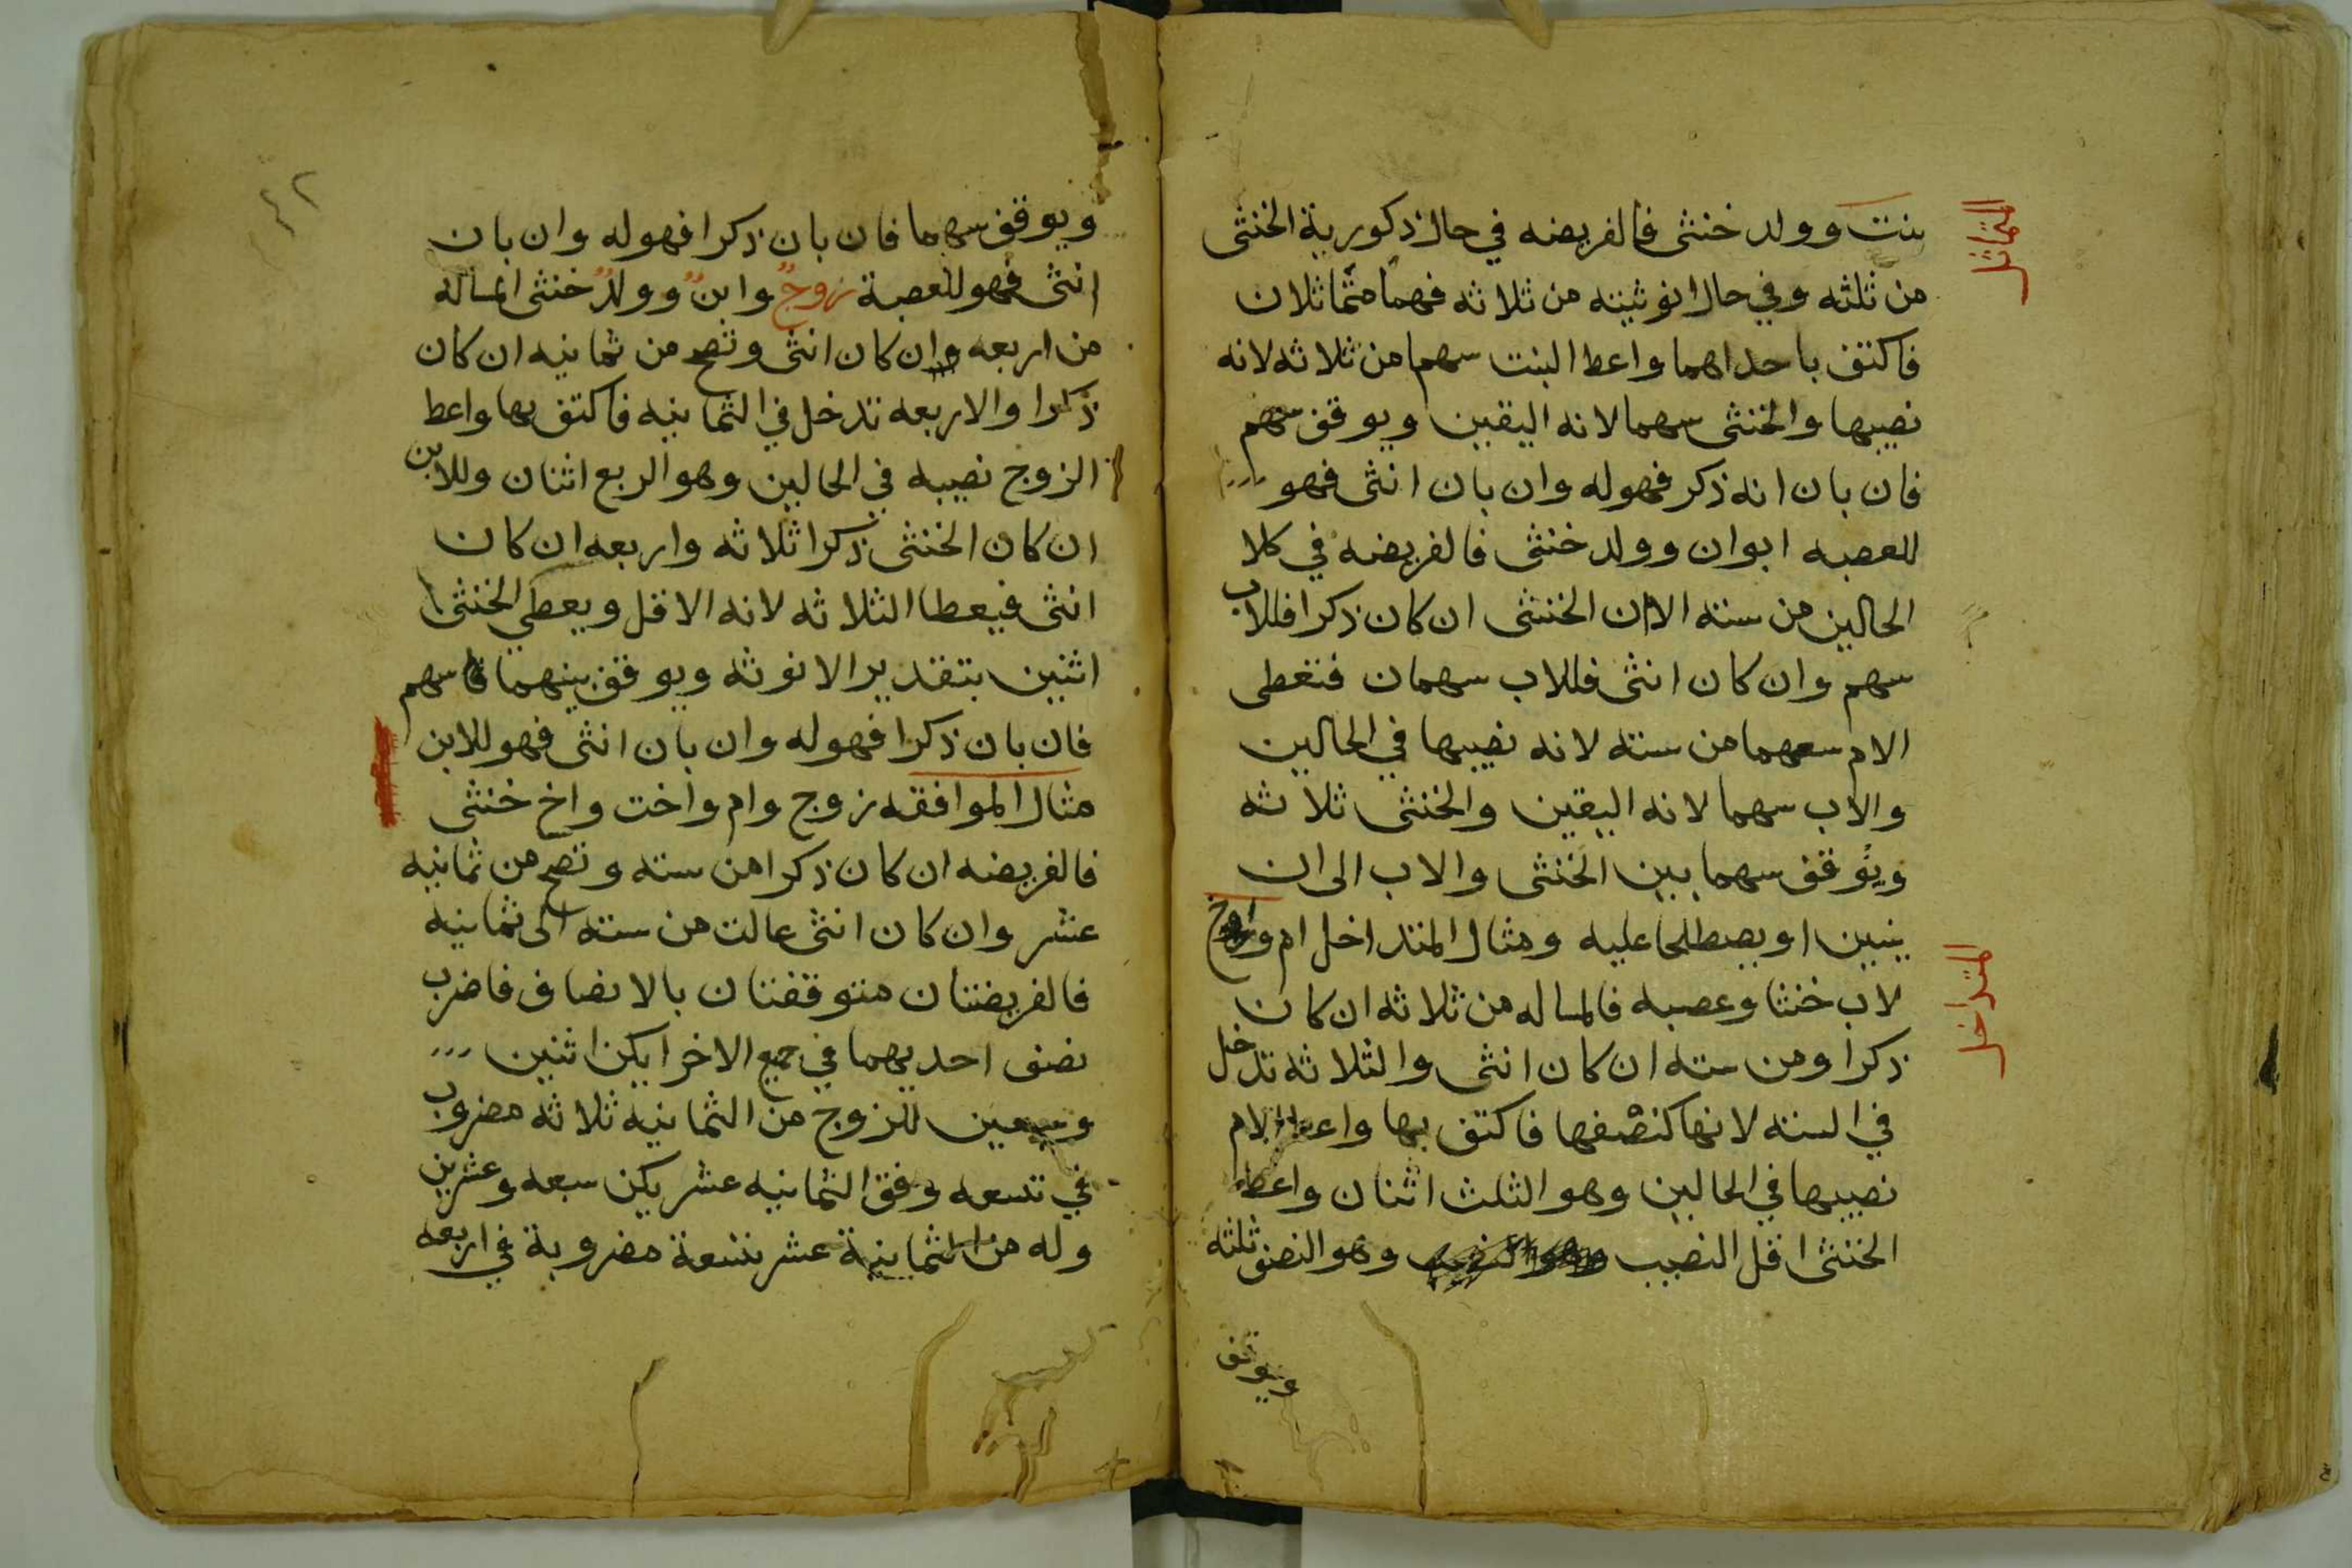 التماثل
بنت وولد خنثى فالفريضه في حال ذكورية الخنثى
من ثلثه وفي حال انوثيته من ثلاثه فهما متماثلان
فاكتف باحداهما واعط البنت سهما من ثلاثه لانه
نصيبها والخنثى سهما لانه اليقين ويوقف سهم
فان بان انه ذكر فهوله وان بان انثى فهو
للعصبه ابوان وولد خنثى فالفريضه في كلا
الحالين من سته الا ان الخنثى ان كان ذكرا فللاب
سهم وان كان انثى فللاب سهمان فتعطى
الام سهما من سته لانه نصيبها في الحالين
والاب سهما لانه اليقين والخنثى ثلاثه
ويوقف سهما بين الخنثى والاب الى ان
يتبين او يصطلحا عليه ومثال المتداخل ام
المتداخل
لاب خنثا وعصبه فالمساله من ثلاثه ان كان
ذكرا ومن سته ان كان انثى والثلاثه تدخل
في السته لانها كنصفها فاكتف بها واعط الام
نصيبها في الحالين وهو الثلث اثنان واعط
الخنثى اقل النصيب وهو النصف ثلثه
ويوقف
ويوقف سهما فان بان ذكرا فهوله وان بان
انثى فهو للعصبة زوج وابن وولد خنثى المساله
من اربعه ان كان انثى وتصح من ثمانيه ان كان
ذكرا والاربعه تدخل في الثمانيه فاكتف بها واعط
الزوج نصيبه في الحالين وهو الربع اثنان وللابن
ان كان الخنثى ذكرا ثلاثه واربعه ان كان
انثى فيعطا الثلاثه لانه الاقل ويعطي الخنثى
اثنين بتقدير الانوثه ويوقف بينهما سهم
فان بان ذكرا فهوله وان بان انثى فهو للابن
مثال الموافقه زوج وام واخت واخ خنثى
فالفريضه ان كان ذكرا من سته وتصح من ثمانيه
عشر وان كان انثى عالت من سته الى ثمانيه
فالفريضتان متوقفتان بالانصاف فاضرب
نصف احديهما في جميع الاخرا يكن اثنين
وسبعين للزوج من الثمانيه ثلاثه مضروب
في تسعه وفق الثمانيه عشر يكن سبعه وعشرين
وله من الثمانية عشر تسعة مضروبة في اربعه